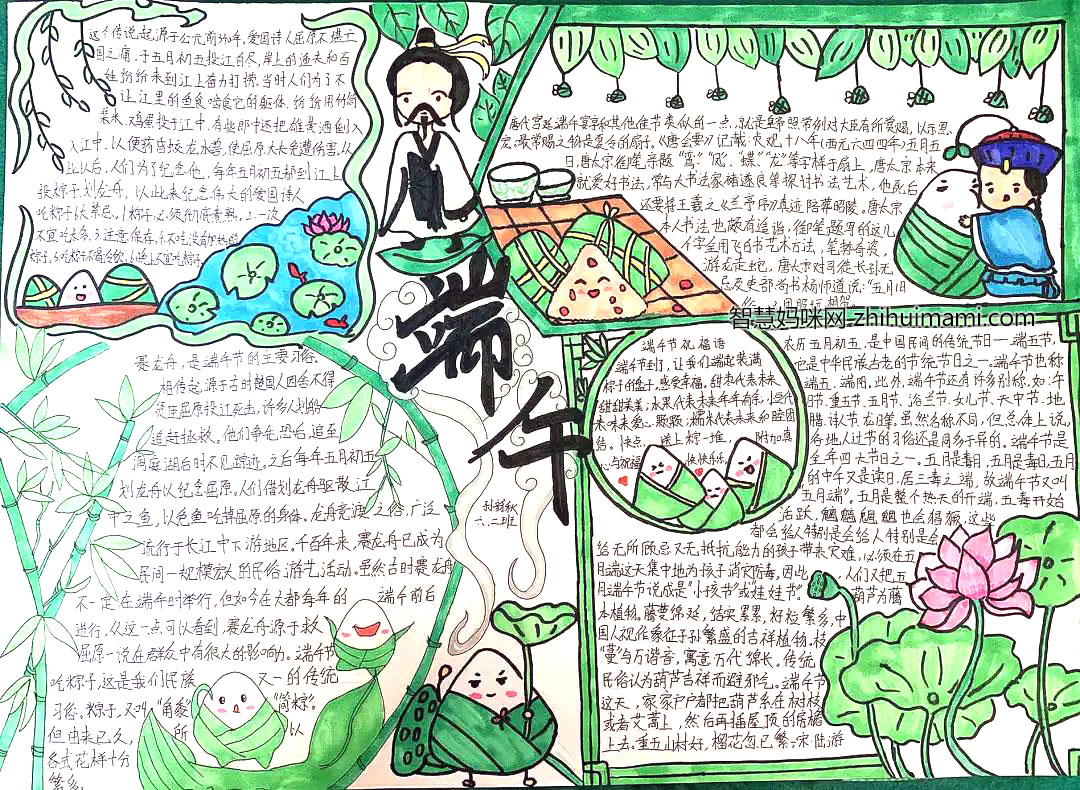 这个传说起源于公元前340年,爱国诗人屈原不堪亡
国之痛,于五月初五投江自尽,岸上的渔夫和百
姓纷纷来到江上奋力打捞,当时人们为了不
让江里的鱼食啃食它的躯体,纷纷用竹筒
装米、鸡蛋投于江中,有些郎中还把雄黄酒倒入
入江中,以便药昏蛟龙水兽,使屈原大夫免遭伤害,从
此以后,人们为了纪念他,每年五月初五都到江上
投粽子,划龙舟,以此来纪念伟大的爱国诗人
吃粽子大禁忌:1.粽子必须彻底煮熟,2.一次
不宜吃太多,3.注意保存,4.不吃没有加热的
端午
孙封秋
六、二班
唐代宫廷端午宴享和其他佳节类似的一点,就是皇帝照常例对大臣有所赏赐,以示恩
宠,最常赐之物是夏令的扇子。《唐会要》记载:贞观十八年(西元六四四年)五月五
日,唐太宗御笔亲题“鸾”“凤”“蝶”“龙”等字样于扇上,唐太宗本来
就爱好书法,常与大书法家褚遂良等探讨书法艺术,他死后
还要将王羲之《兰亭序》真迹陪葬昭陵。唐太宗
本人书法也颇有造诣,御笔题写的这几
个字全用飞白书艺术方法,笔势奇姿,
游龙走蛇,唐太宗对司徒长孙无
忌及吏部尚书杨师道说:“五月旧
俗,必用服玩相贺
智慧妈咪网 zhihuimami.com
赛龙舟,是端午节的主要习俗。
相传起源于古时楚国人因舍不得
贤臣屈原投江死去,许多人划船
追赶拯救。他们争先恐后,追至
洞庭湖后时不见踪迹。之后每年五月初五
划龙舟以纪念屈原。人们借划龙舟驱散江
中之鱼,以免鱼吃掉屈原的身体。龙舟竞渡之俗,广泛
流行于长江中下游地区。千百年来,赛龙舟已成为
民间一规模宏大的民俗游艺活动。虽然古时赛龙舟
不一定在端午时举行,但如今在大都每年的端午前后
进行,从这一点可以看到,赛龙舟源于救
屈原一说在群众中有很大的影响力。端午节
吃粽子,这是我们民族又一的传统
习俗。粽子,又叫“角黍”“筒粽”。
但由来已久,所以
各式花样十分
繁多。
端午节祝福语
端午节到了,让我们端起装满
粽子的盘子,感受幸福。甜枣代表未来
甜甜美美;水果代表未来年年有余
农历五月初五,是中国民间的传统节日—端五节,
它是中华民族古老的传统节日之一。端午节也称
端五、端阳。此外,端午节还有许多别称,如:午
日节、重五节、五月节、浴兰节、女儿节、天中节、地
腊、诗人节、龙日等。虽然名称不同,但总体上说,
各地人过节的习俗还是同多于异的。端午节是
全年四大节日之一。五月是毒月,五月是毒日,五月
的中午又是读日,居三毒之端,故端午节又叫
“五月端”。五月是整个热天的开端,五毒开始
活跃,魑魅魍魉也会猖獗,这些
都会给人特别是会给人特别是会
给无所顾忌又无抵抗能力的孩子带来灾难,必须在五
月端这天集中地为孩子消灾防毒,因此,人们又把五
月端午节说成是“小孩节”或“娃娃节”。葫芦为藤
本植物。藤蔓绵延,结实累累,籽粒繁多,中
国人视作象征子孙繁盛的吉祥植物。枝
“蔓”与万谐音,寓意万代绵长。传统
民俗认为葫芦吉祥而避邪气。端午节
这天,家家户户都把葫芦系在树枝
或者艾蒿上,然后再插屋顶的房檐
上去。重五山村好,榴花忽已繁。宋·陆游